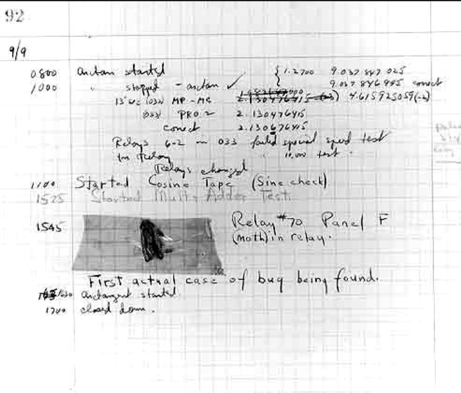 92
9/9
0800 antan started { 1.2700 9.037 847 025
1000 " stopped - antan ✓ 9.037 846 995 correct
13"uc (032) MP-MC 2.130476415 4.615925059(-2)
(033) PRO 2 2.130476415
correct 2.130676415
Relays 6-2 in 033 failed special speed test
in Relay " 10.000 test.
Relays changed
1100 Started Cosine Tape (Sine check)
1525 Started Mult+Adder Test.
1545 Relay #70 Panel F
(moth) in relay.
First actual case of bug being found.
1630 antangent started
1700 closed down.